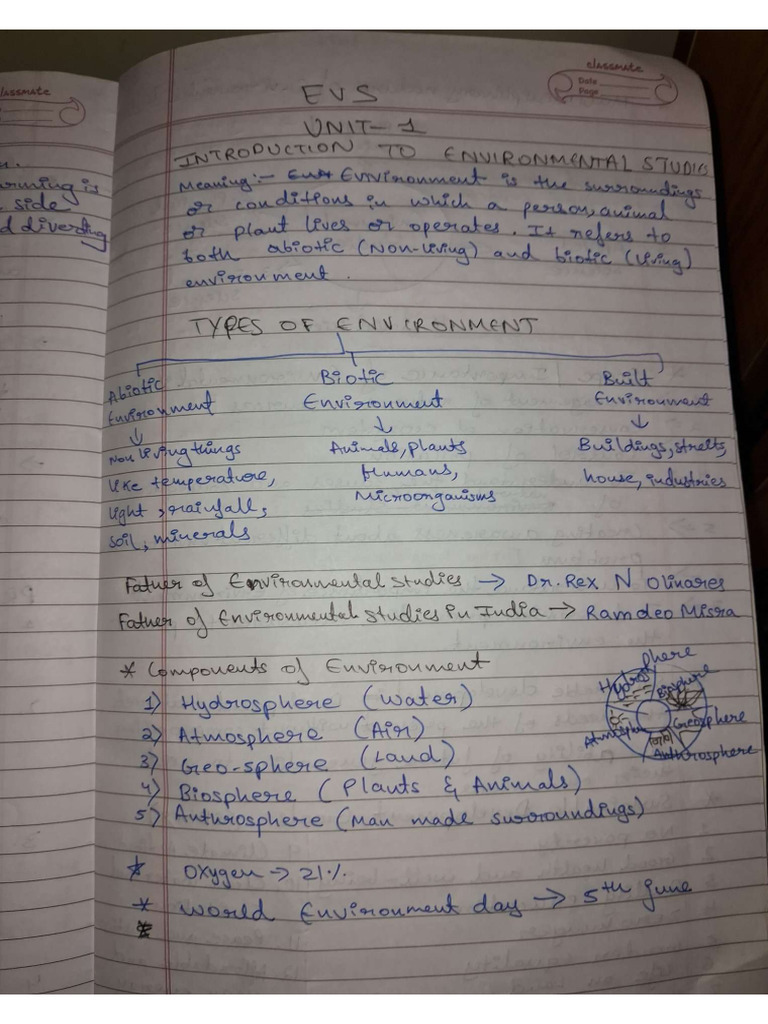 classmate
rming is
side
d diverting
classmate
Date
Page
EVS
UNIT-1
INTRODUCTION TO ENVIRONMENTAL STUDIES
Meaning:- Environment is the surroundings
or conditions in which a person, animal
or plant lives or operates. It refers to
both abiotic (Non-living) and biotic (living)
environment.
TYPES OF ENVIRONMENT
Abiotic Biotic Built
Environment Environment Environment
↓ ↓ ↓
Non living things Animals, plants Buildings, streets,
like temperature, Humans, house, industries
light, rainfall, Microorganisms
soil, minerals
Father of Environmental Studies → Dr. Rex N Olinares
Father of Environmental Studies in India → Ramdeo Misra
* Components of Environment
1) Hydrosphere (Water)
2) Atmosphere (Air)
3) Geo-sphere (Land)
4) Biosphere (Plants & Animals)
5) Anthrosphere (Man made surroundings)
Hydrosphere
Biosphere
Atmosphere
Geosphere
Anthrosphere
* Oxygen → 21%
* World Environment day → 5th June
*